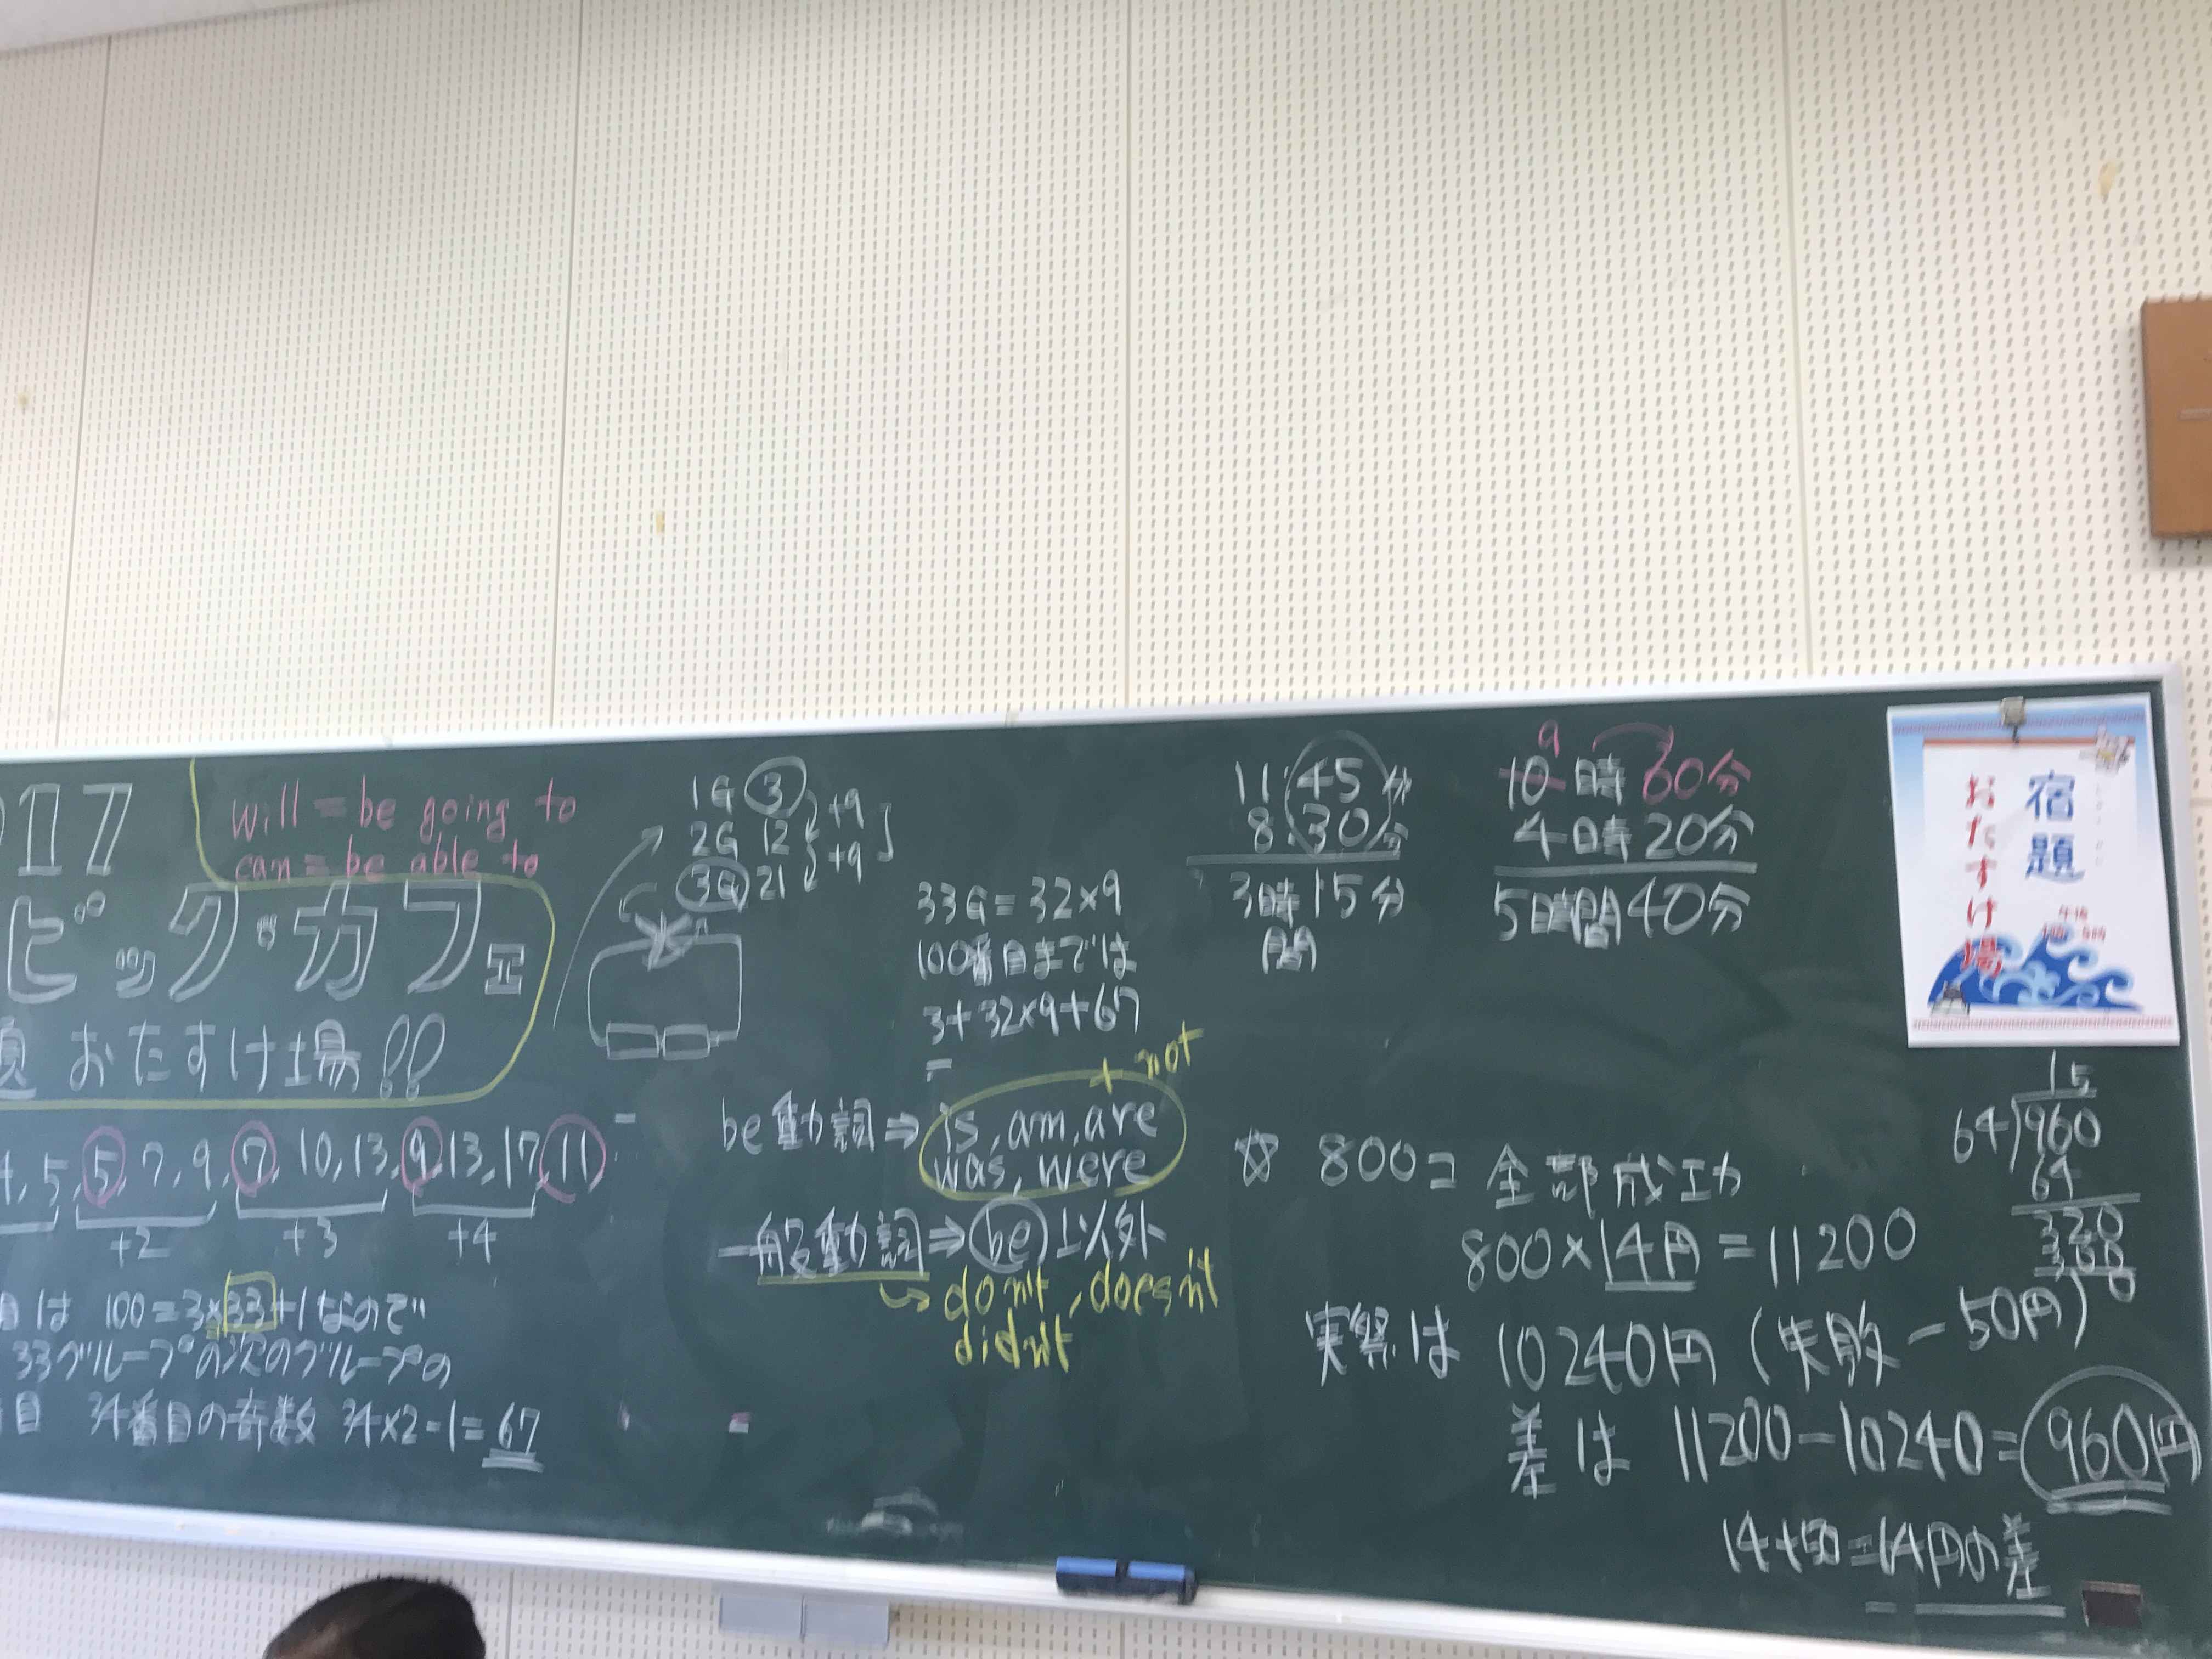 017
will = be going to
can = be able to
ビッグカフェ
おたすけ場!!
4, 5, 5, 7, 9, 7, 10, 13, 9, 13, 17, 11
+2 +3 +4
目は 100=3×33+1なので
33グループの次のグループの
目 34番目の奇数 34×2-1=67
1G 3
2G 12 +9
3G 21 +9
33G=32×9
100番目までは
3+32×9+67
=
+ not
be動詞⇒ is, am, are
was, were
一般動詞⇒be以外
don't, doesn't
didn't
11:45分
8:30分
3時15分
間
9
10時 60分
4時20分
5時間40分
宿題
おたすけ場
☆ 800コ 全部成功
800×14円=11200
実際は 10240円 (失敗 -50円)
差は 11200-10240=960円
14+50=
円の差
15
64)960
64
320
0